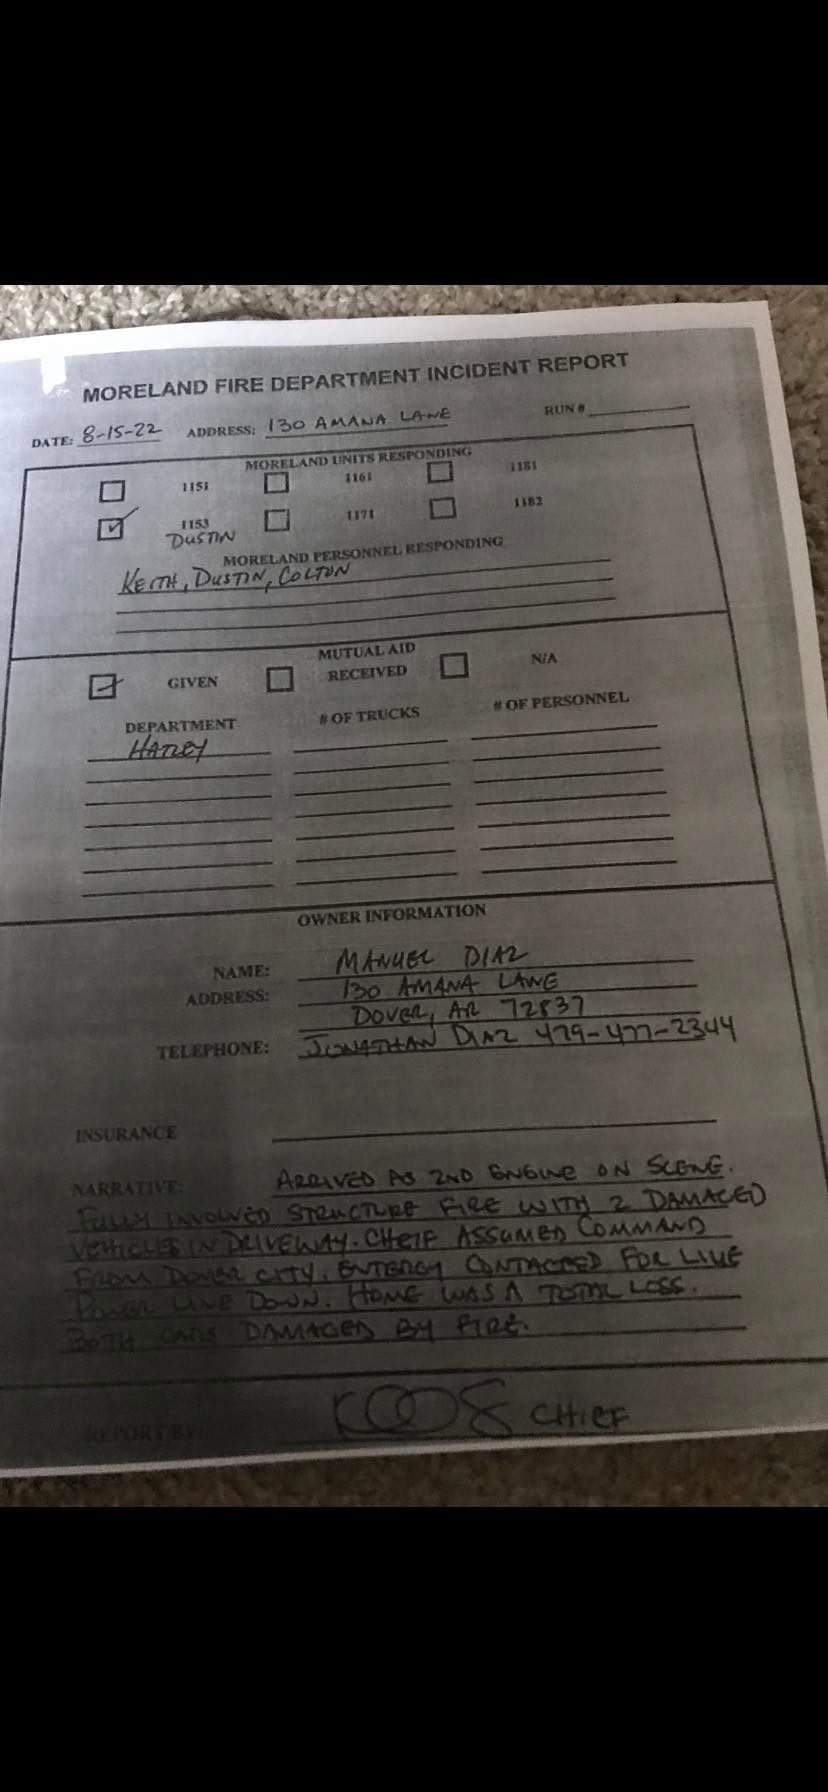 MORELAND FIRE DEPARTMENT INCIDENT REPORT
DATE: 8-15-22 ADDRESS: 130 AMANA LANE RUN #
MORELAND UNITS RESPONDING
1151 1161 1181
1153 1171 1182
DUSTIN
MORELAND PERSONNEL RESPONDING
KEITH, DUSTIN, COLTON
MUTUAL AID
GIVEN RECEIVED N/A
DEPARTMENT # OF TRUCKS # OF PERSONNEL
HATLEY
OWNER INFORMATION
NAME: MANUEL DIAZ
ADDRESS: 130 AMANA LANE
DOVER, AR 72837
TELEPHONE: JONATHAN DIAZ 479-477-2344
INSURANCE
NARRATIVE: ARRIVED AS 2ND ENGINE ON SCENE.
FULLY INVOLVED STRUCTURE FIRE WITH 2 DAMAGED
VEHICLES IN DRIVEWAY. CHEIF ASSUMED COMMAND
FROM DOVER CITY. ENTERGY CONTACTED FOR LIVE
POWER LINE DOWN. HOME WAS A TOTAL LOSS.
BOTH CARS DAMAGED BY FIRE.
REPORT BY: CHIEF